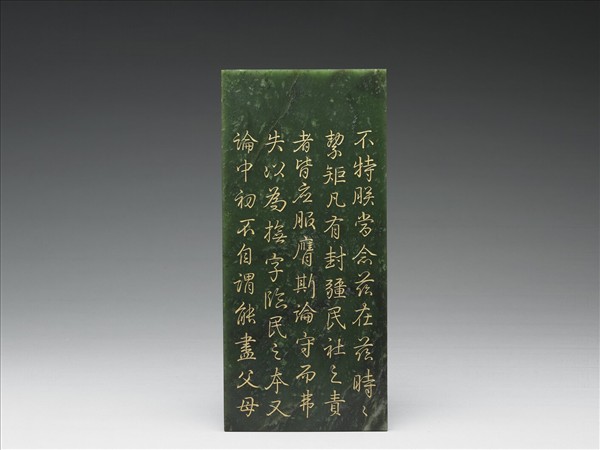 不特朕當念茲在茲時〻
絜矩凡有封疆民社之責
者皆應服膺斯論守而弗
失以為撫字臨民之本又
論中初不自謂能盡父母